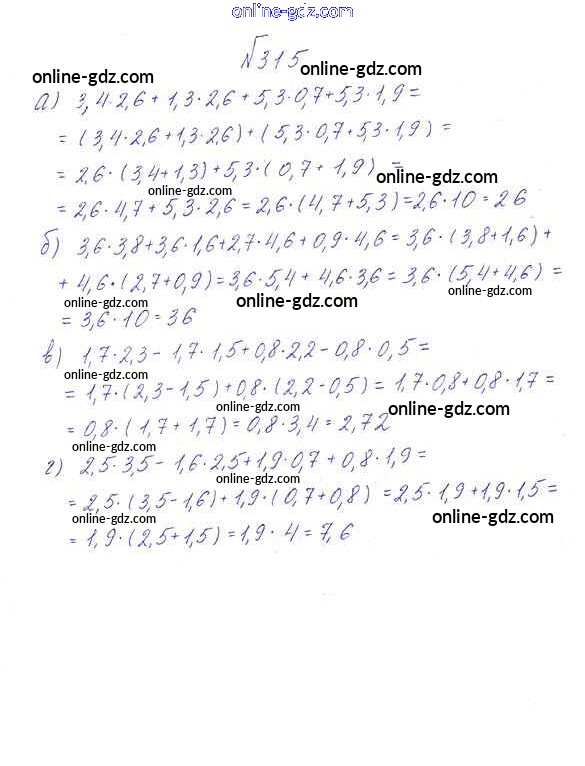 online-gdz.com
№315
online-gdz.com online-gdz.com
а) 3,4·2,6+1,3·2,6+5,3·0,7+5,3·1,9=
=(3,4·2,6+1,3·2,6)+(5,3·0,7+5,3·1,9)=
=2,6·(3,4+1,3)+5,3·(0,7+1,9)=
online-gdz.com online-gdz.com
=2,6·4,7+5,3·2,6=2,6·(4,7+5,3)=2,6·10=26
online-gdz.com
б) 3,6·3,8+3,6·1,6+2,7·4,6+0,9·4,6=3,6·(3,8+1,6)+
+4,6·(2,7+0,9)=3,6·5,4+4,6·3,6=3,6·(5,4+4,6)=
online-gdz.com online-gdz.com online-gdz.com
=3,6·10=36
в) 1,7·2,3-1,7·1,5+0,8·2,2-0,8·0,5=
online-gdz.com
=1,7·(2,3-1,5)+0,8·(2,2-0,5)=1,7·0,8+0,8·1,7=
online-gdz.com online-gdz.com
=0,8·(1,7+1,7)=0,8·3,4=2,72
online-gdz.com
г) 2,5·3,5-1,6·2,5+1,9·0,7+0,8·1,9=
online-gdz.com
=2,5·(3,5-1,6)+1,9·(0,7+0,8)=2,5·1,9+1,9·1,5=
online-gdz.com online-gdz.com online-gdz.com
=1,9·(2,5+1,5)=1,9·4=7,6